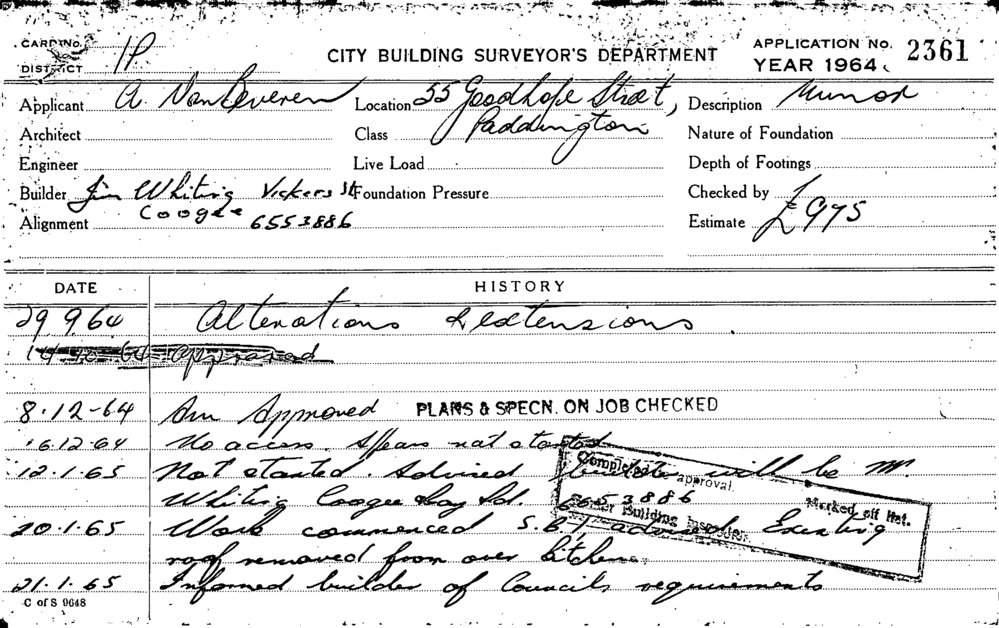 CARD No.
DISTRICT 1P
CITY BUILDING SURVEYOR'S DEPARTMENT
APPLICATION No. 2361
YEAR 1964
Applicant A Van Beveren Location 55 Goodhope Street, Paddington Description Minor
Architect Class Nature of Foundation
Engineer Live Load Depth of Footings
Builder Jim Whiting Vickers St Coogee Foundation Pressure Checked by
Alignment 6553886 Estimate £975
DATE HISTORY
29 9.64 Alterations & extensions.
14.10.64 Approved
8.12-64 Am Approved PLANS & SPECN. ON JOB CHECKED
16.12.64 No access. Appears not started
12.1.65 Not started. Advised builder will be Mr.
Whiting Coogee Bay Rd. 665 3886
20.1.65 Work commenced S.B.I. Existing
roof removed from over kitchen.
21.1.65 Informed builder of Councils requirements
Completed approval.
Marked off list.
Building Inspector.
C of S 9648